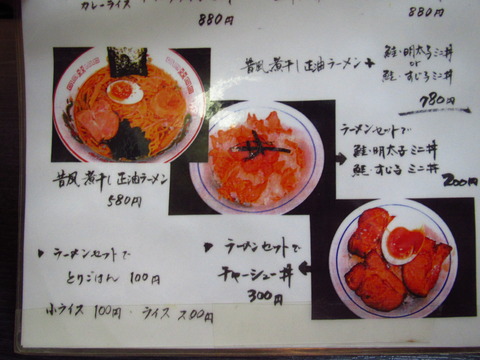 カレーライス
880円
880円
昔風煮干し正油ラーメン+
鮭・明太子ミニ丼
or
鮭・すじこミニ丼
780円
昔風煮干し正油ラーメン
580円
ラーメンセットで
鮭・明太子ミニ丼
鮭・すじこミニ丼
200円
ラーメンセットで
とりごはん 100円
ラーメンセットで
チャーシュー丼
300円
小ライス 100円・ライス 200円